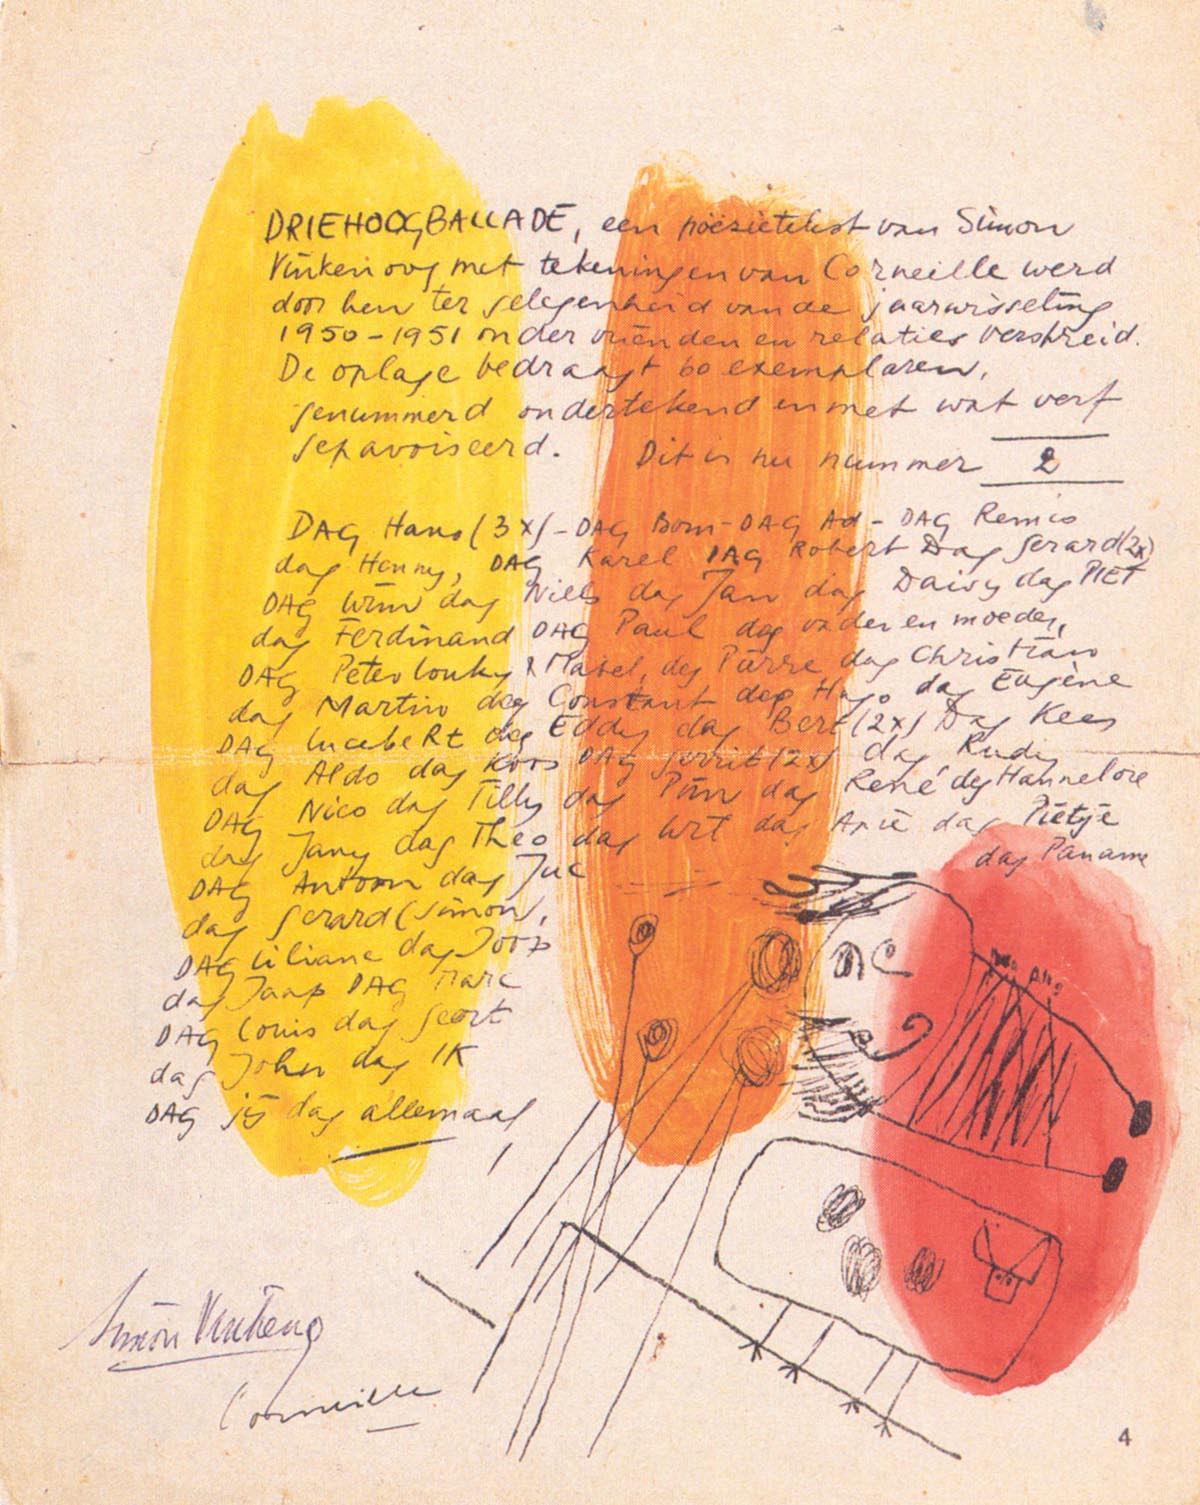 DRIEHOOGBALLADE, een poëzietekst van Simon
Vinkenoog met tekeningen van Corneille werd
door hen ter gelegenheid van de jaarwisseling
1950-1951 onder vrienden en relaties verspreid.
De oplage bedraagt 60 exemplaren,
genummerd ondertekend en met wat verf
gepavoiseerd. Dit is nu nummer 2
DAG Hans (3x) - DAG Bom - DAG Ad - DAG Remco
dag Hanny, DAG Karel DAG Robert Dag Gerard (2x)
DAG Wim dag Niels dag Jan dag Daisy dag PIET
dag Ferdinand DAG Paul dag vader en moeder,
DAG Peter Louky & Mabel, dag Pierre dag Christian
dag Martin dag Constant dag Hugo dag Eugène
DAG LucebeRt dag Eddy dag Bert (2x) Dag Kees
dag Aldo dag Koos DAG Gerrit (2x) dag Rudy
DAG Nico dag Tilly dag Pim dag René dag Hannelore
dag Jany dag Theo dag Wit dag Arie dag Pietje
dag Paname
DAG Antoon dag Juc
dag Gerard (Simon,
DAG Liliane dag Joop
dag Jaap DAG Marc
DAG Louis dag Geort
dag John dag IK
DAG jij dag allemaal
Simon Vinkenoog
Corneille
4